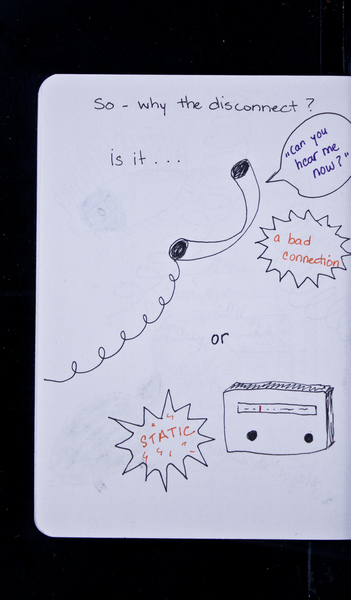 So - why the disconnect?
is it...
"Can you
hear me
now?"
a bad
connection
or
STATIC